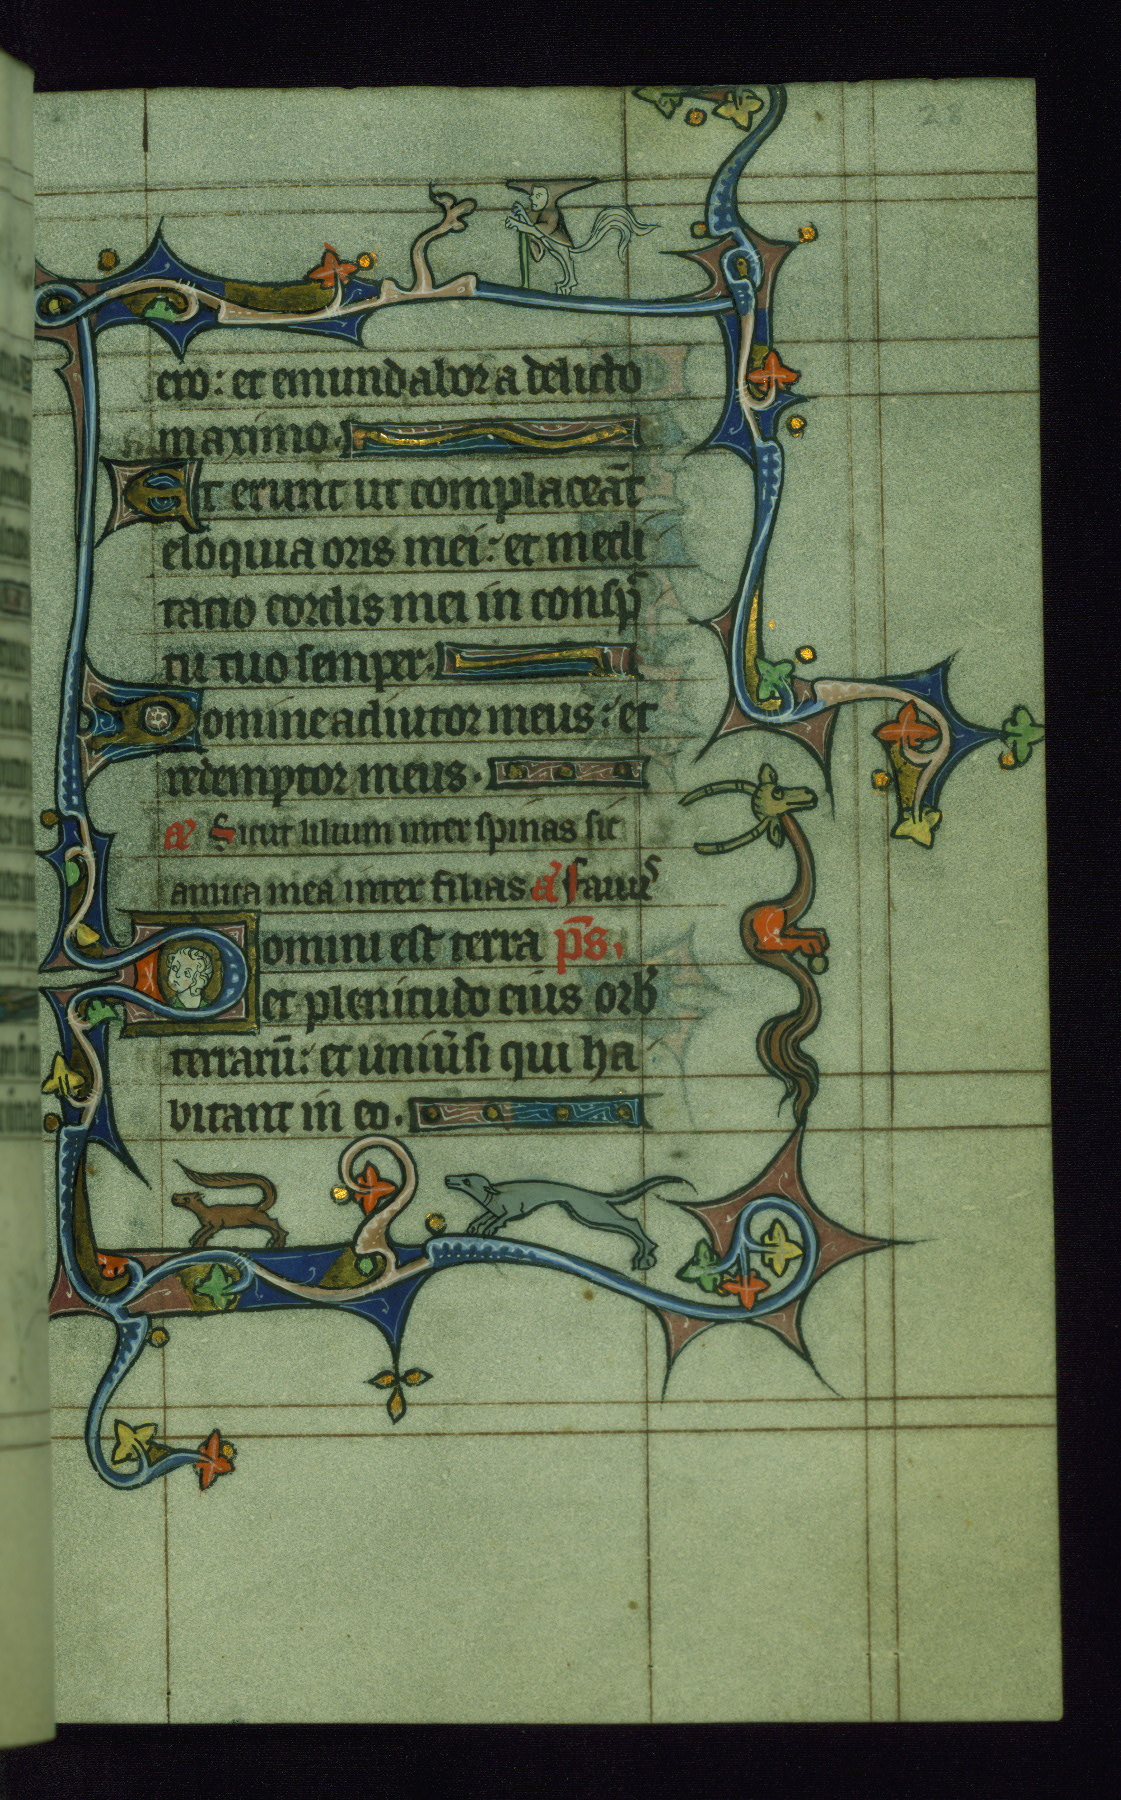 28
ero: et emundabor a delicto
maximo.
Et erunt ut complaceāt
eloquia oris mei: et medi
tatio cordis mei in consp̄
tu tuo semper.
Domine adiutor meus: et
redemptor meus.
añ Sicut lilium inter spinas sic
amica mea inter filias añ Fauus
Domini est terra p̄s.
et plenitudo eius orb̄
terrarū: et uniūsi qui ha
bitant in eo.